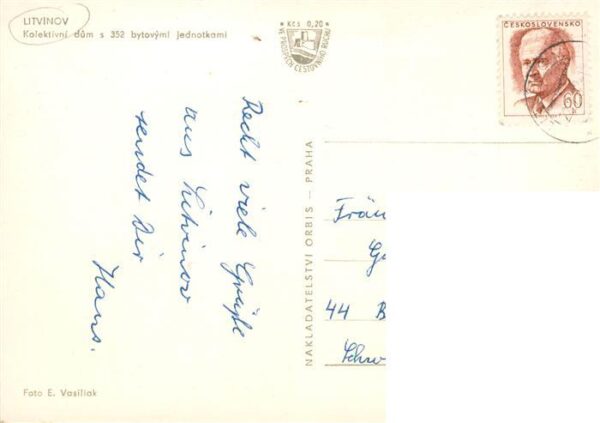 LITVÍNOV
Kolektivní dům s 352 bytovými jednotkami
Kčs 0,20
VE PROSPĚCH CESTOVNÍHO RUCHU
ČESKOSLOVENSKO
60
Recht viele Grüße
aus Litvinov
sendet Dir
Hans.
NAKLADATELSTVÍ ORBIS — PRAHA
Fräu
44 B
Foto E. Vasiliak